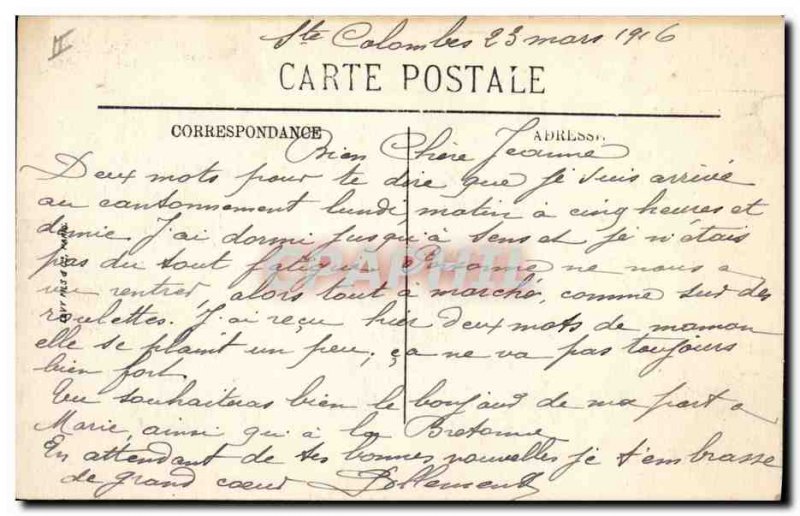 Ste Colombes 23 mars 1916
CARTE POSTALE
CORRESPONDANCE
ADRESSE
Bien Chère Jeanne
Deux mots pour te dire que je suis arrivé
au cantonnement lundi matin à cinq heures et
demie. J'ai dormi jusqu'à Sens et je n'étais
pas du tout fatigué. Personne ne nous a
vu rentrer, alors tout à marché, comme sur des
roulettes. J'ai reçu hier deux mots de maman
elle se plaint un peu, ça ne va pas toujours
bien fort.
Tu souhaiteras bien le bonjour de ma part a
Marie, ainsi qu'à la Bretonne
En attendant de tes bonnes nouvelles je t'embrasse
de grand coeur
CPAPHIL